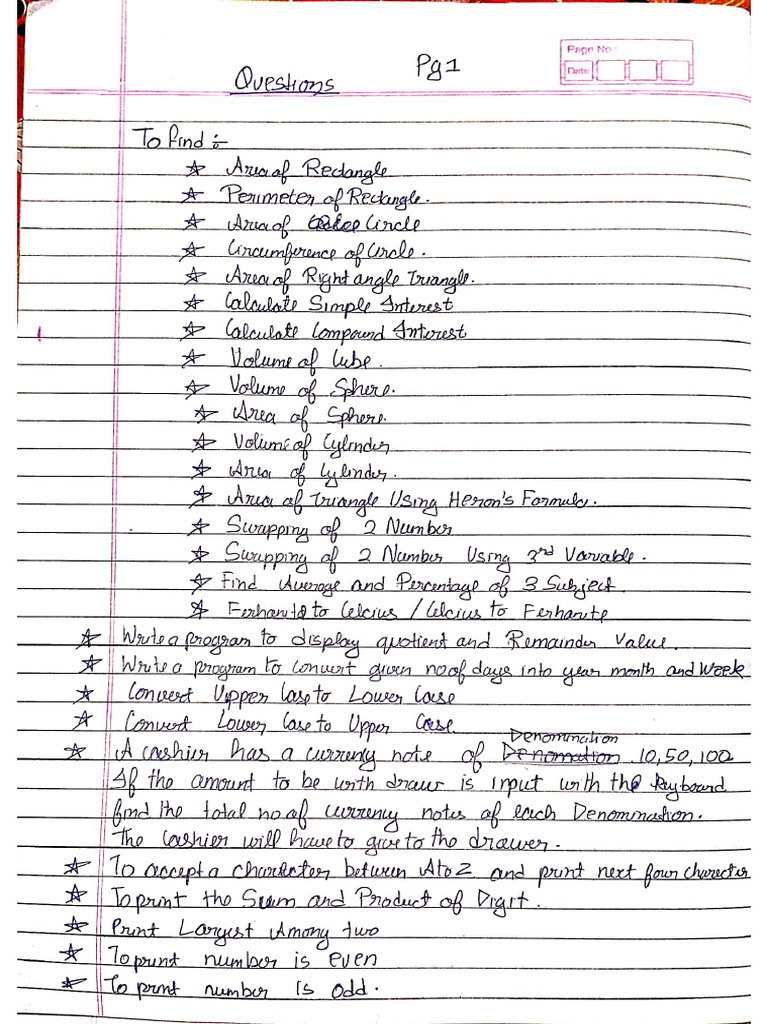 Pg1
Page No:
Date
Questions
To find :-
☆ Area of Rectangle
☆ Perimeter of Rectangle.
☆ Area of Circle
☆ Circumference of Circle.
☆ Area of Right angle Triangle.
☆ Calculate Simple Interest
☆ Calculate Compound Interest
☆ Volume of Cube.
☆ Volume of Sphere.
☆ Area of Sphere.
☆ Volume of Cylinder
☆ Area of Cylinder.
☆ Area of Triangle Using Heron's Formula.
☆ Swapping of 2 Number
☆ Swapping of 2 Number Using 3rd Variable.
☆ Find Average and Percentage of 3 Subject.
☆ Ferhanite to Celcius / Celcius to Ferhanite
☆ Write a program to display quotient and Remainder Value.
☆ Write a program to convert given no of days into year month and week
☆ Convert Upper Case to Lower Case
☆ Convert Lower Case to Upper Case
Denommination
☆ A cashier has a currency note of Denomation 10, 50, 100
If the amount to be with draw is input with the keyboard
find the total no of currency notes of each Denommination.
The Cashier will have to give to the drawer.
☆ To accept a character between A to Z and print next four charecter
☆ To print the Sum and Product of Digit.
☆ Print Largest Among two
☆ To print number is even
☆ To print number is odd.